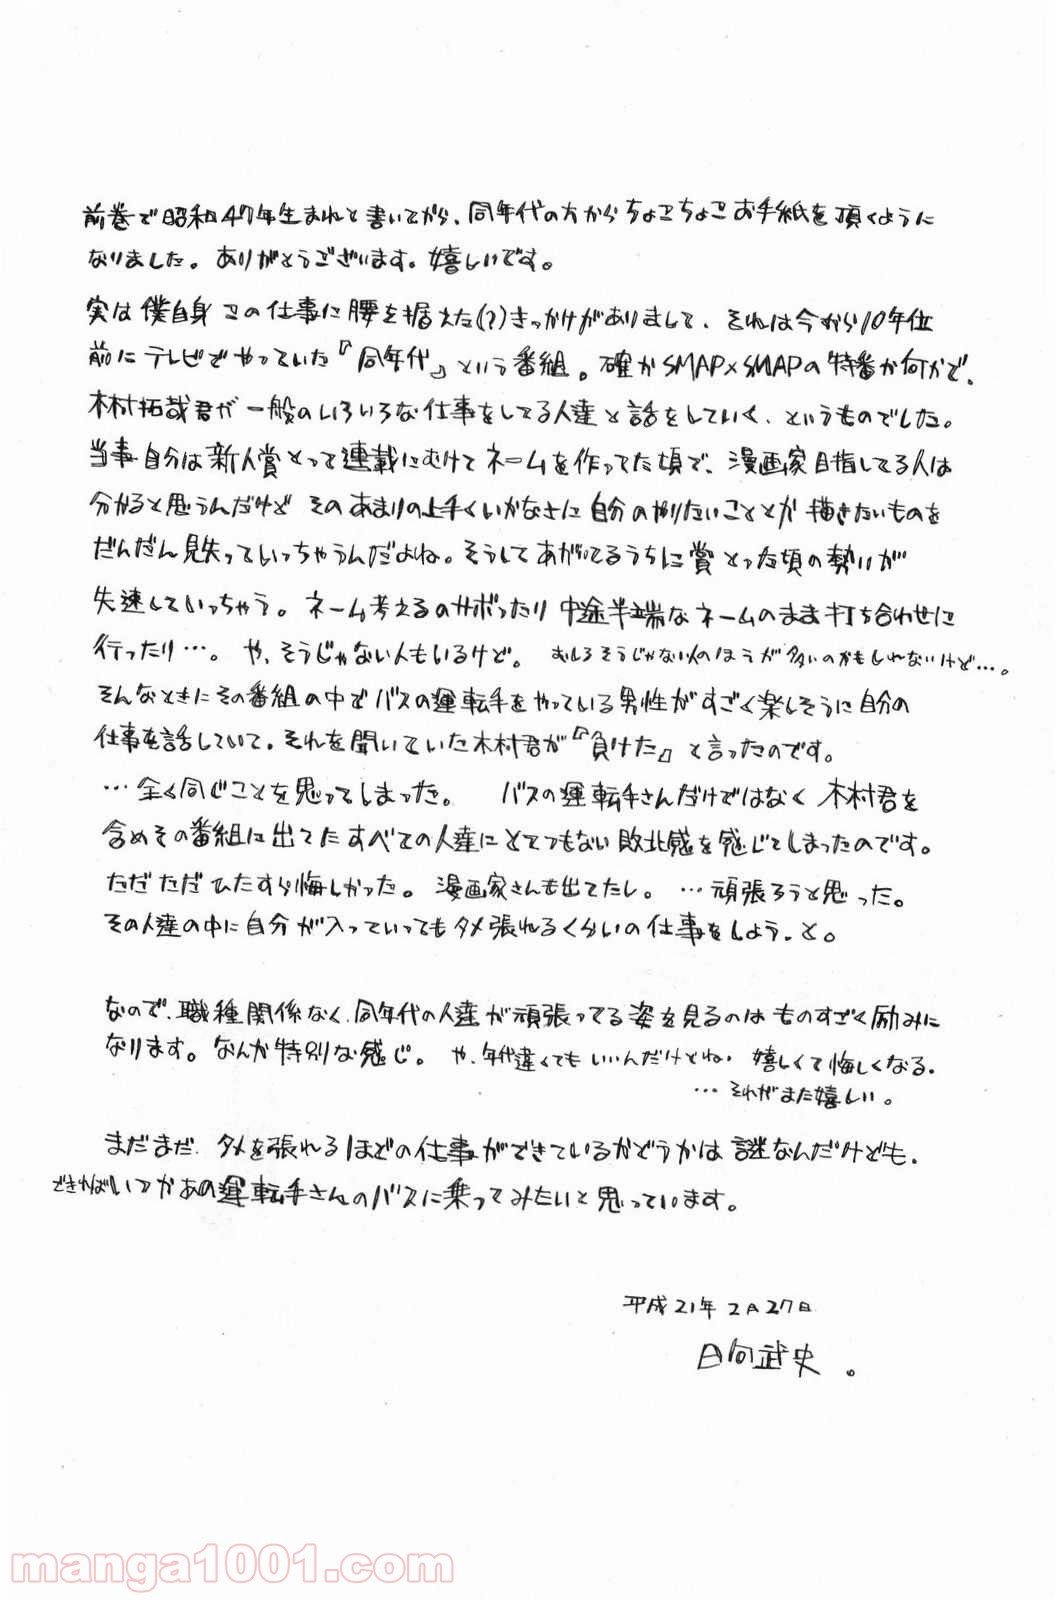 前巻で昭和47年生まれと書いてから、同年代の方からちょこちょこお手紙を頂くように
なりました。ありがとうございます。嬉しいです。
実は僕自身この仕事に腰を据えた(?)きっかけがありまして、それは今から10年位
前にテレビでやっていた『同年代』という番組。確かSMAP×SMAPの特番か何かで、
木村拓哉君が一般のいろいろな仕事をしてる人達と話をしていく、というものでした。
当事自分は新人賞とって連載にむけてネームを作ってた頃で、漫画家目指してる人は
分かると思うんだけど そのあまりの上手くいかなさに自分のやりたいこととか描きたいものを
だんだん見失っていっちゃうんだよね。そうしてあがいてるうちに賞とった頃の勢いが
失速していっちゃう。ネーム考えるのサボったり中途半端なネームのまま打ち合わせに
行ったり…。や、そうじゃない人もいるけど。むしろそうじゃない人のほうが多いのかもしれないけど…。
そんなときにその番組の中でバスの運転手をやっている男性がすごく楽しそうに自分の
仕事を話していて、それを聞いていた木村君が『負けた』と言ったのです。
…全く同じことを思ってしまった。 バスの運転手さんだけではなく木村君を
含めその番組に出てたすべての人達にとてつもない敗北感を感じてしまったのです。
ただただひたすら悔しかった。漫画家さんも出てたし。…頑張ろうと思った。
その人達の中に自分が入っていってもタメ張れるくらいの仕事をしよう、と。
なので、職種関係なく、同年代の人達が頑張ってる姿を見るのはものすごく励みに
なります。なんか特別な感じ。や、年代違くてもいいんだけどね。嬉しくて悔しくなる。
…それがまた嬉しい。
まだまだ、タメを張れるほどの仕事ができているかどうかは謎なんだけども、
できればいつかあの運転手さんのバスに乗ってみたいと思っています。
平成21年2月27日
日向武史。
manga1001.com